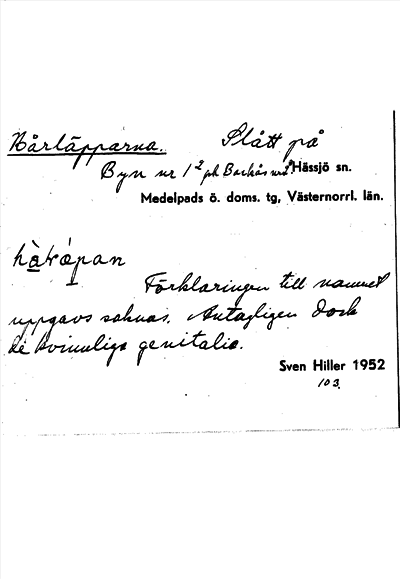 Hårläpparna. Slått på
Byn nr 1² på Hässjö sn.
Medelpads ö. doms. tg, Västernorrl. län.
hàrǽpan
Förklaringen till namnet
uppgavs saknas. Antagligen dock
de kvinnliga genitalia.
Sven Hiller 1952
103.